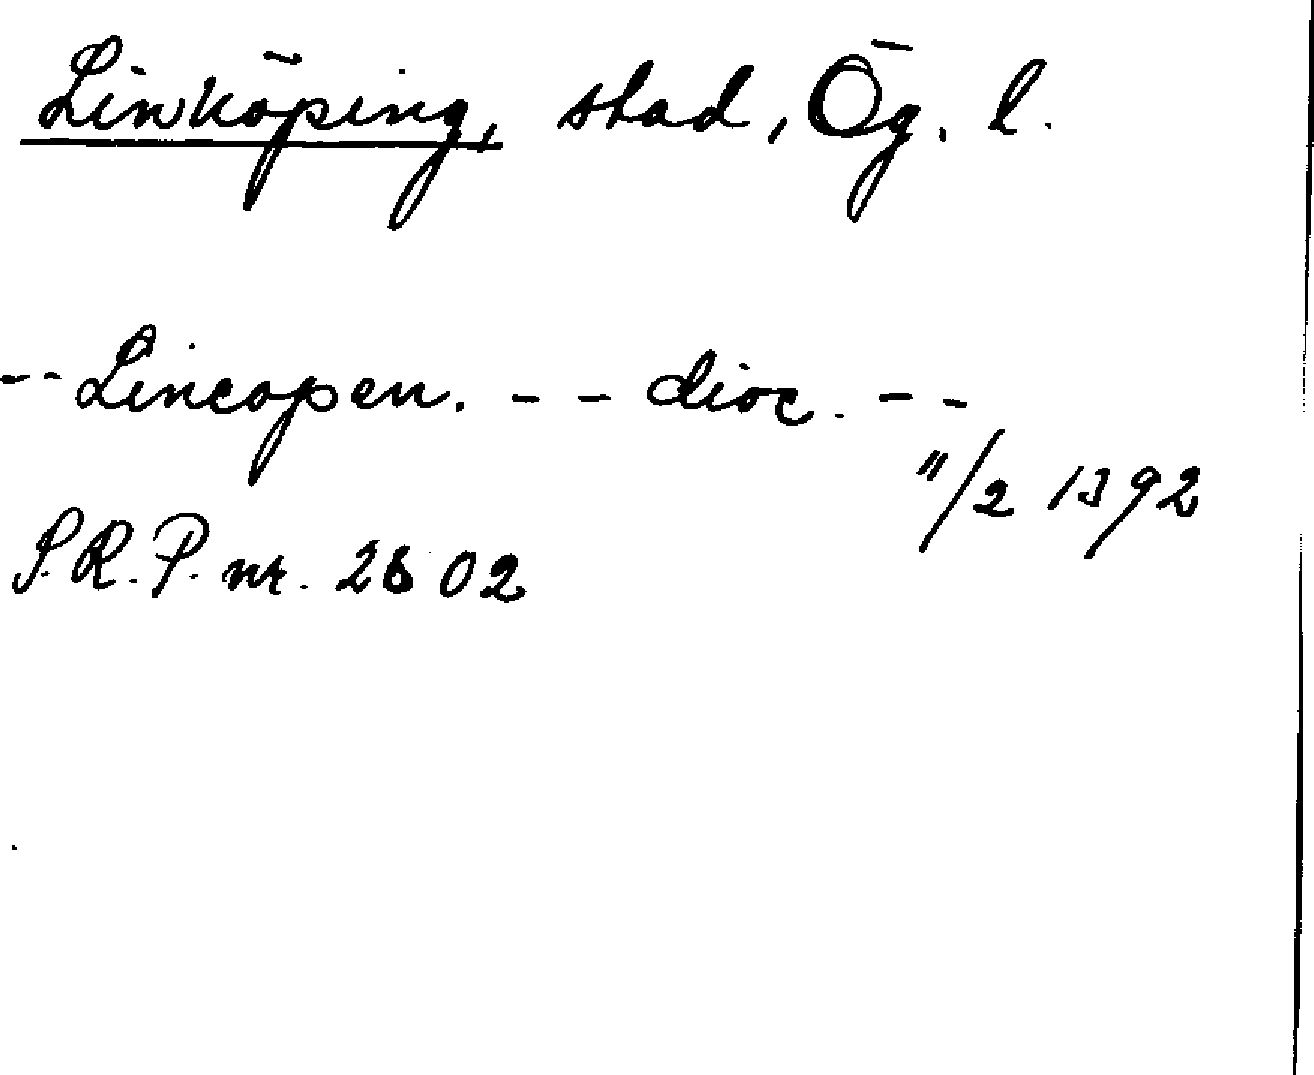 Linköping, stad, Ög. l.
-- Lincopen. -- dioc. --
11/2 1392
S.R.P. nr. 2602